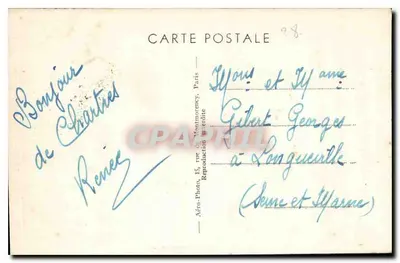 CARTE POSTALE
28.
Bonjour
de Chartres
Renée
— Aéro-Photo, 15, rue de Montmorency, Paris —
Reproduction interdite
Mons et Mame
Gibert Georges
à Longueville
(Seine et Marne)
CPARAMA